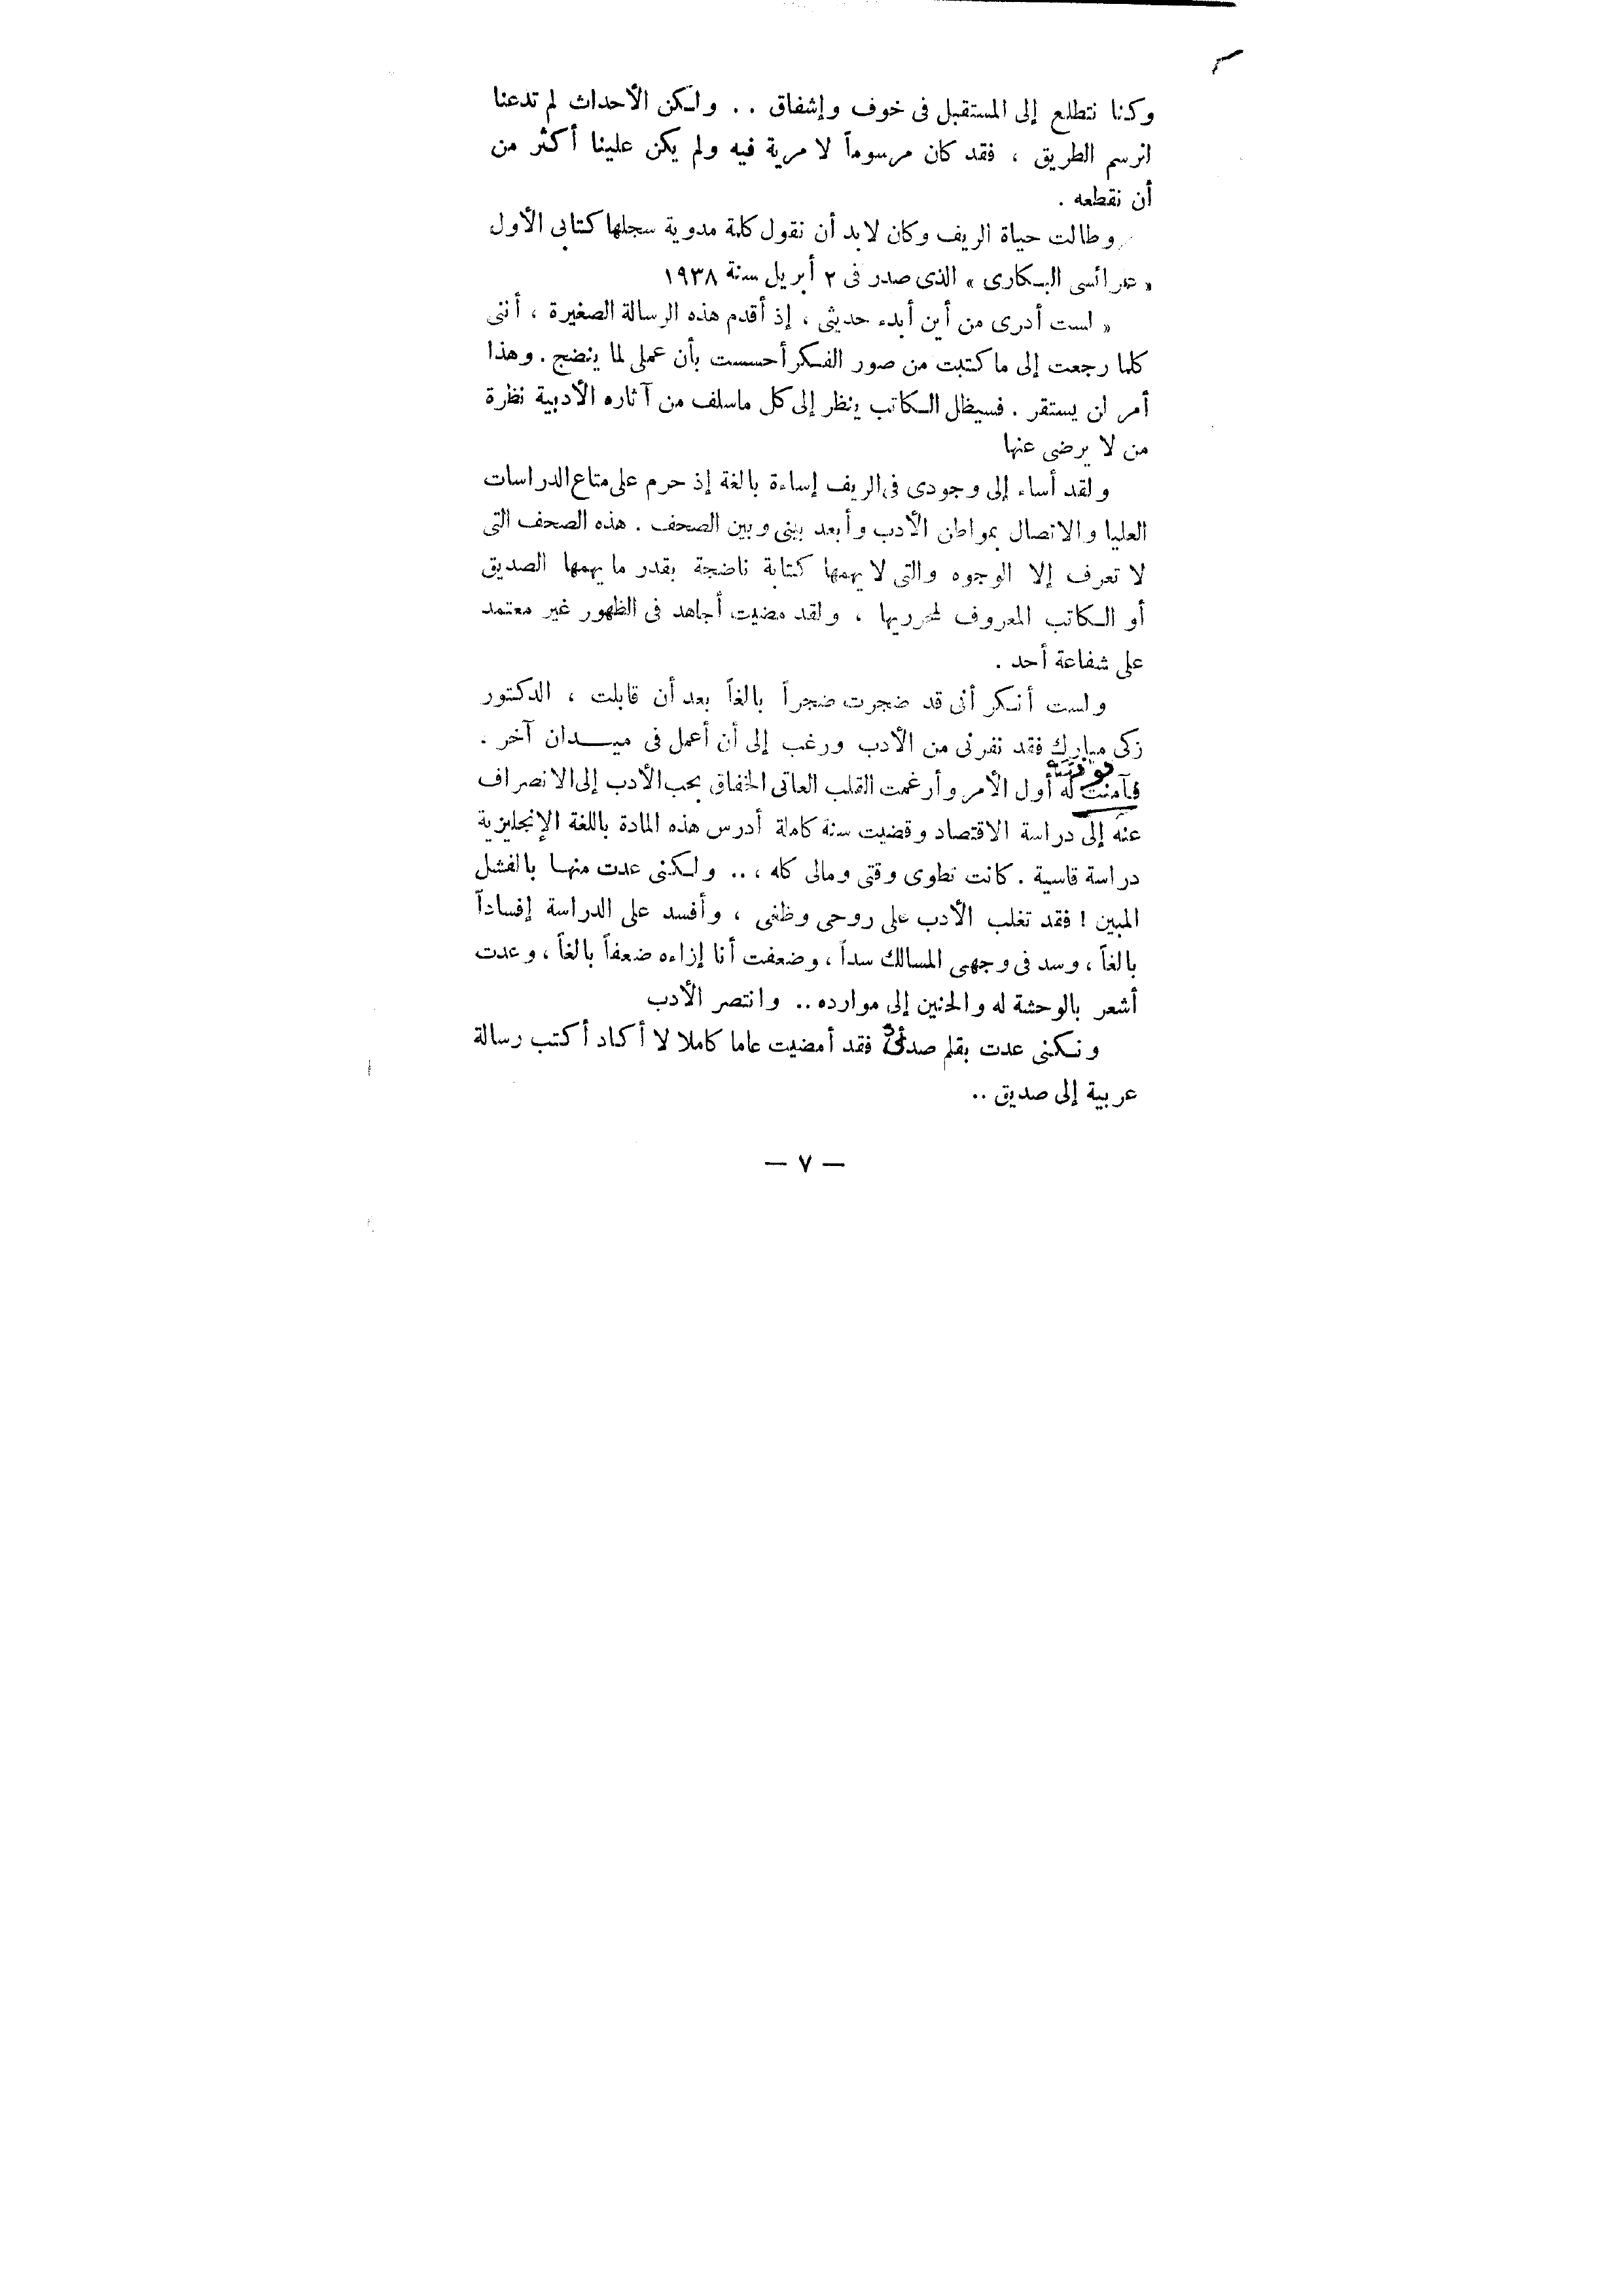 وكنا نتطلع إلى المستقبل فى خوف وإشفاق .. ولكن الأحداث لم تدعنا
انرسم الطريق ، فقد كان مرسوماً لا مرية فيه ولم يكن علينا أكثر من
أن نقطعه .
وطالت حياة الريف وكان لابد أن نقول كلمة مدوية سجلها كتابى الأول
« عرائسى البكارى » الذى صدر فى ٢ أبريل سنة ١٩٣٨
« لست أدرى من أين أبدء حديثى ، إذ أقدم هذه الرسالة الصغيرة ، أننى
كلما رجعت إلى ما كتبت من صور الفكر أحسست بأن عملى لما ينضج . وهذا
أمر لن يستقر . فسيظل الكاتب ينظر إلى كل ماسلف من آثاره الأدبية نظرة
من لا يرضى عنها
ولقد أساء إلى وجودى فى الريف إساءة بالغة إذ حرم على متاع الدراسات
العليا والاتصال بمواطن الأدب وأبعد بينى وبين الصحف . هذه الصحف التى
لا تعرف إلا الوجوه والتى لا يهمها كتابة ناضجة بقدر ما يهمها الصديق
أو الكاتب المعروف لمحرريها ، ولقد مضيت أجاهد فى الظهور غير معتمد
على شفاعة أحد .
ولست أنكر أنى قد ضجرت ضجراً بالغاً بعد أن قابلت ، الدكتور
زكى مبارك فقد نفرنى من الأدب ورغب إلى أن أعمل فى ميدان آخر .
فآمنت له أول الأمر وأرغمت القلب العاتى الخفاق بحب الأدب إلى الانصراف
عنه إلى دراسة الاقتصاد وقضيت سنة كاملة أدرس هذه المادة باللغة الإنجليزية
دراسة قاسية . كانت تطوى وقتى ومالى كله ، .. ولكنى عدت منها بالفشل
المبين ! فقد تغلب الأدب على روحى وظفى ، وأفسد على الدراسة إفساداً
بالغاً ، وسد فى وجهى المسالك سداً ، وضعفت أنا إزاءه ضعفاً بالغاً ، وعدت
أشعر بالوحشة له والحنين إلى موارده .. وانتصر الأدب
ولكنى عدت بقلم صدئ فقد أمضيت عاما كاملا لا أكاد أكتب رسالة
عربية إلى صديق ..
— ٧ —